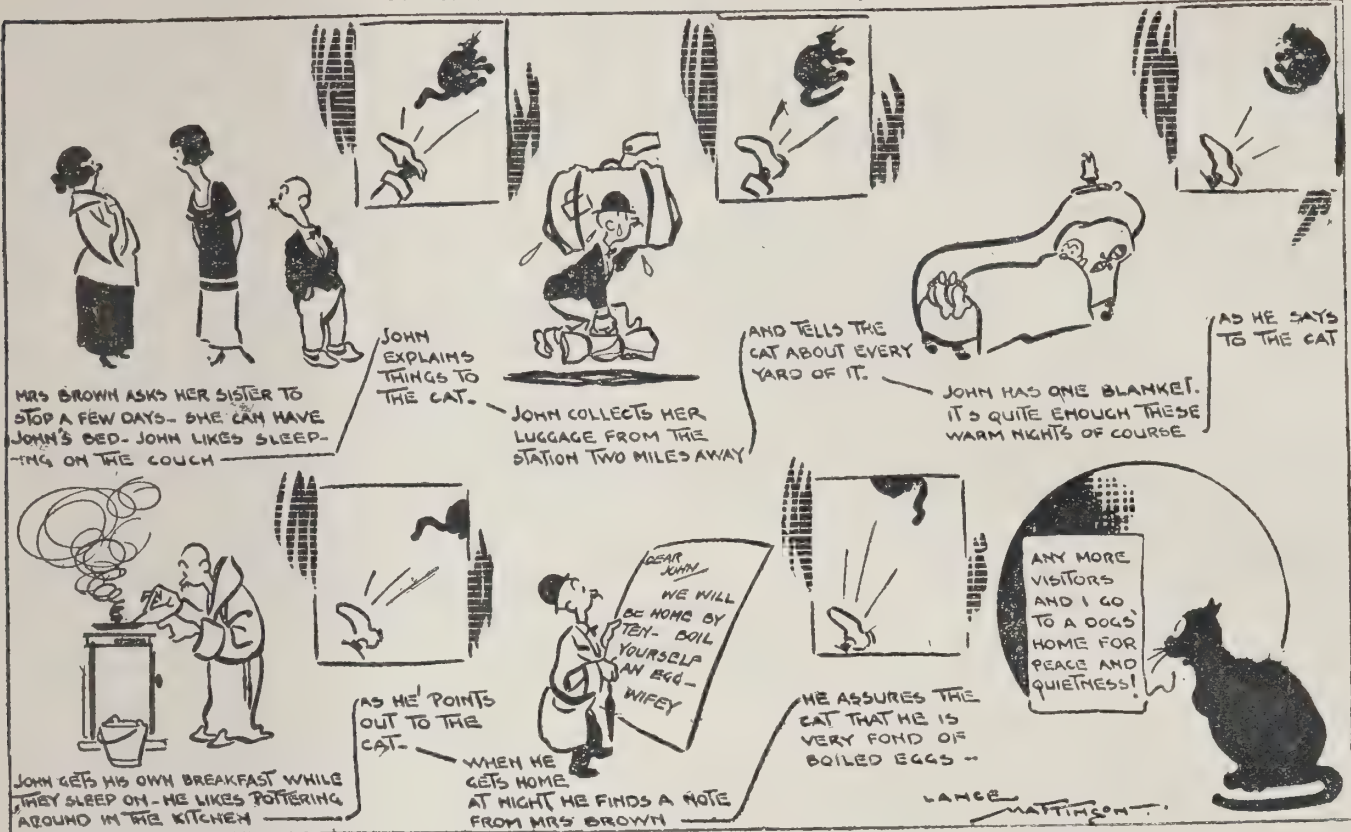 MRS BROWN ASKS HER SISTER TO
STOP A FEW DAYS- SHE CAN HAVE
JOHN'S BED- JOHN LIKES SLEEP-
-ING ON THE COUCH
JOHN
EXPLAINS
THINGS TO
THE CAT-
JOHN COLLECTS HER
LUGGAGE FROM THE
STATION TWO MILES AWAY
AND TELLS THE
CAT ABOUT EVERY
YARD OF IT.
JOHN HAS ONE BLANKET.
IT'S QUITE ENOUGH THESE
WARM NIGHTS OF COURSE
AS HE SAYS
TO THE CAT
JOHN GETS HIS OWN BREAKFAST WHILE
THEY SLEEP ON- HE LIKES POTTERING
AROUND IN THE KITCHEN
AS HE POINTS
OUT TO THE
CAT-
WHEN HE
GETS HOME
AT NIGHT HE FINDS A NOTE
FROM MRS BROWN
DEAR
JOHN
WE WILL
BE HOME BY
TEN- BOIL
YOURSELF
AN EGG-
WIFEY
HE ASSURES THE
CAT THAT HE IS
VERY FOND OF
BOILED EGGS --
ANY MORE
VISITORS
AND I GO
TO A DOGS'
HOME FOR
PEACE AND
QUIETNESS!
LANCE